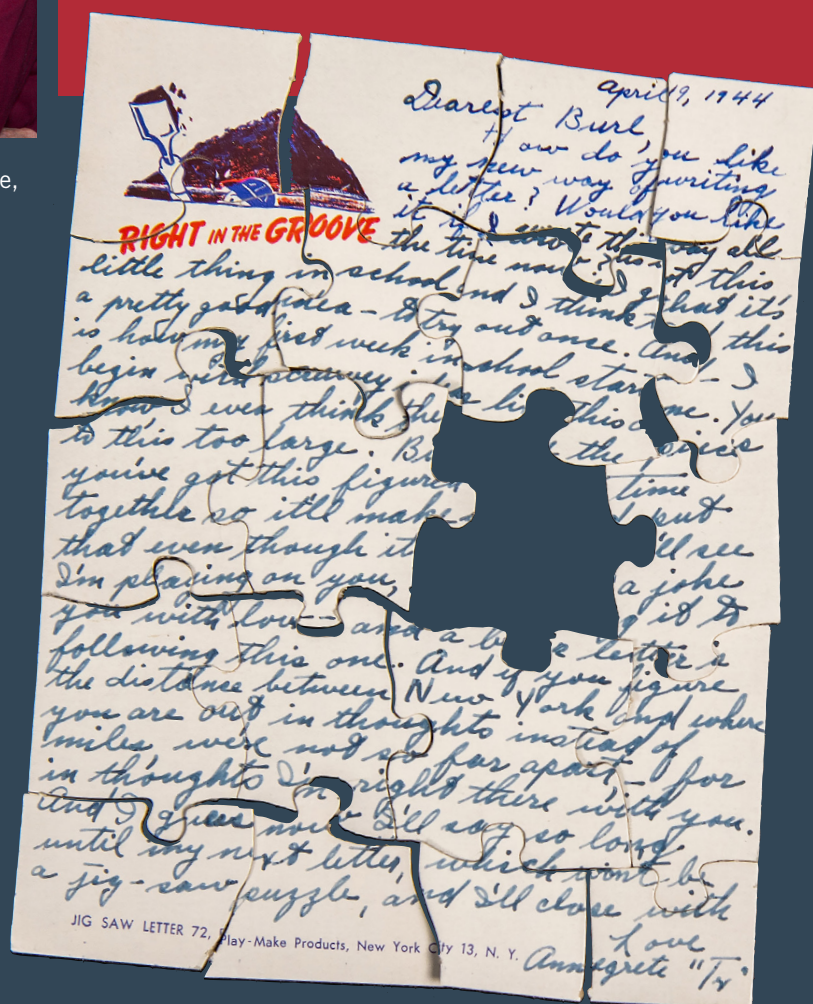 e,
April 9, 1944
Dearest Burl,
How do you like
my new way of writing
a letter? Would you like
it if I wrote this way all
RIGHT IN THE GROOVE
the time now? this
little thing in school and I think that it's
a pretty good idea - to try out once. And this
is how my first week in school
begin with - I
know I even think the this one. You
to this too large. Bu the pieces
you've got this figured time
together so it'll make put
that even though it 'll see
I'm playing on you, a joke
you with love - and a g it to
following this one. And if you letter is
the distance between New York figure
you are out in thoughts instead of and where
miles we're not so far apart - for
in thoughts I'm right there with you.
And I guess now I'll say so long
until my next letter, which won't be
a jig-saw puzzle, and I'll close with
Love
Annegrete "Tx"
JIG SAW LETTER 72, Play-Make Products, New York City 13, N. Y.